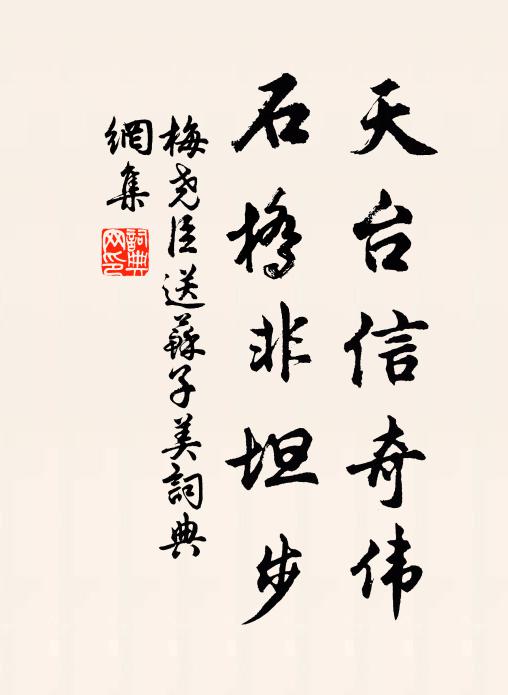 天台信奇伟
石橋非坦步
梅尧臣送蘇子美詞典
網集
詞典
网印